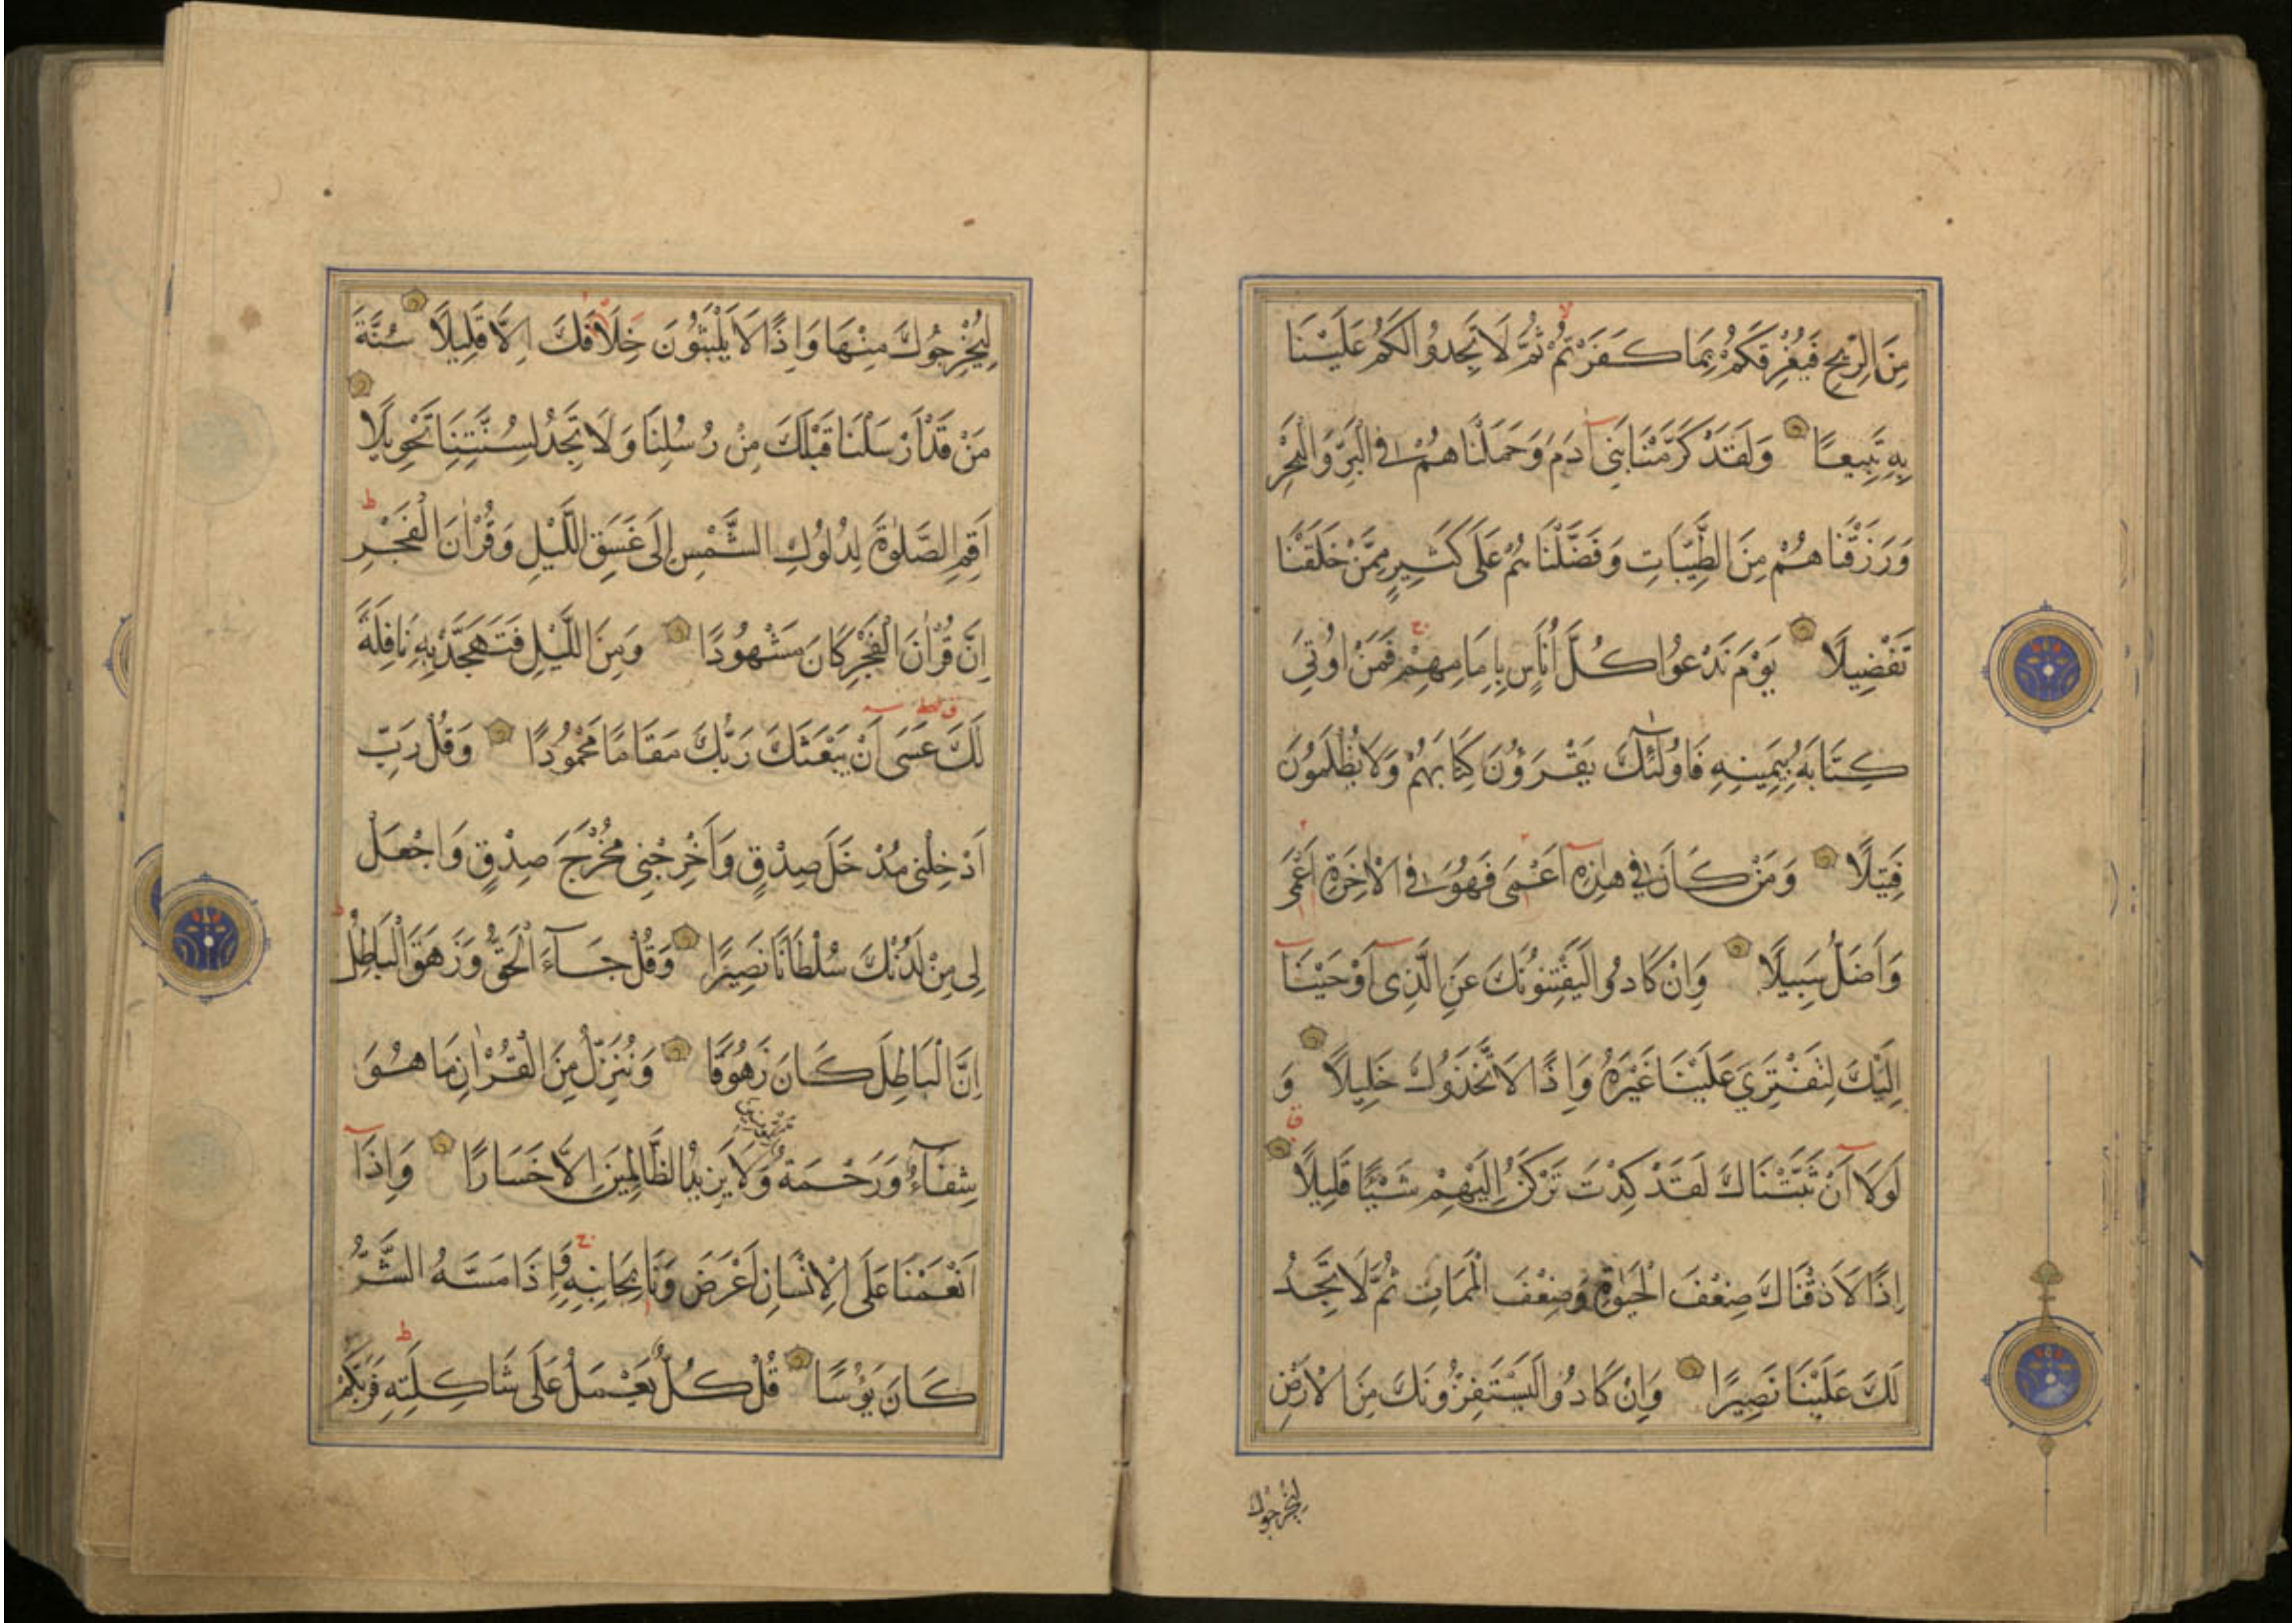 مِنَ الرِّيحِ فَيُغْرِقَكُمْ بِمَا كَفَرْتُمْ ثُمَّ لَا تَجِدُوا لَكُمْ عَلَيْنَا
بِهِ تَبِيعًا وَلَقَدْ كَرَّمْنَا بَنِي آدَمَ وَحَمَلْنَاهُمْ فِي الْبَرِّ وَالْبَحْرِ
وَرَزَقْنَاهُمْ مِنَ الطَّيِّبَاتِ وَفَضَّلْنَاهُمْ عَلَى كَثِيرٍ مِمَّنْ خَلَقْنَا
تَفْضِيلًا يَوْمَ نَدْعُوا كُلَّ أُنَاسٍ بِإِمَامِهِمْ فَمَنْ اُوتِيَ
كِتَابَهُ بِيَمِينِهِ فَاُولٰئِكَ يَقْرَؤُنَ كِتَابَهُمْ وَلَا يُظْلَمُونَ
فَتِيلًا وَمَنْ كَانَ فِي هٰذِهِ اَعْمَى فَهُوَ فِي الْاٰخِرَةِ اَعْمَى
وَاَضَلُّ سَبِيلًا وَاِنْ كَادُوا لَيَفْتِنُونَكَ عَنِ الَّذِي اَوْحَيْنَا
اِلَيْكَ لِتَفْتَرِيَ عَلَيْنَا غَيْرَهُ وَاِذًا لَاتَّخَذُوكَ خَلِيلًا وَ
لَوْلَا اَنْ ثَبَّتْنَاكَ لَقَدْ كِدْتَ تَرْكَنُ اِلَيْهِمْ شَيْئًا قَلِيلًا
اِذًا لَاَذَقْنَاكَ ضِعْفَ الْحَيٰوةِ وَضِعْفَ الْمَمَاتِ ثُمَّ لَا تَجِدُ
لَكَ عَلَيْنَا نَصِيرًا وَاِنْ كَادُوا لَيَسْتَفِزُّونَكَ مِنَ الْاَرْضِ
لِيُخْرِجُوكَ
لِيُخْرِجُوكَ مِنْهَا وَاِذًا لَا يَلْبَثُونَ خِلَافَكَ اِلَّا قَلِيلًا سُنَّةَ
مَنْ قَدْ اَرْسَلْنَا قَبْلَكَ مِنْ رُسُلِنَا وَلَا تَجِدُ لِسُنَّتِنَا تَحْوِيلًا
اَقِمِ الصَّلٰوةَ لِدُلُوكِ الشَّمْسِ اِلَى غَسَقِ اللَّيْلِ وَقُرْاٰنَ الْفَجْرِ
اِنَّ قُرْاٰنَ الْفَجْرِ كَانَ مَشْهُودًا وَمِنَ اللَّيْلِ فَتَهَجَّدْ بِهِ نَافِلَةً
لَكَ عَسَى اَنْ يَبْعَثَكَ رَبُّكَ مَقَامًا مَحْمُودًا وَقُلْ رَبِّ
اَدْخِلْنِي مُدْخَلَ صِدْقٍ وَاَخْرِجْنِي مُخْرَجَ صِدْقٍ وَاجْعَلْ
لِي مِنْ لَدُنْكَ سُلْطَانًا نَصِيرًا وَقُلْ جَاءَ الْحَقُّ وَزَهَقَ الْبَاطِلُ
اِنَّ الْبَاطِلَ كَانَ زَهُوقًا وَنُنَزِّلُ مِنَ الْقُرْاٰنِ مَا هُوَ
شِفَاءٌ وَرَحْمَةٌ وَلَا يَزِيدُ الظَّالِمِينَ اِلَّا خَسَارًا وَاِذَا
اَنْعَمْنَا عَلَى الْاِنْسَانِ اَعْرَضَ وَنَاٰ بِجَانِبِهِ وَاِذَا مَسَّهُ الشَّرُّ
كَانَ يَؤُسًا قُلْ كُلٌّ يَعْمَلُ عَلَى شَاكِلَتِهِ فَرَبُّكُمْ